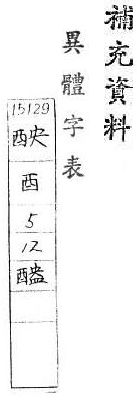 補充資料
異體字表
15129
酉
5
12
醠